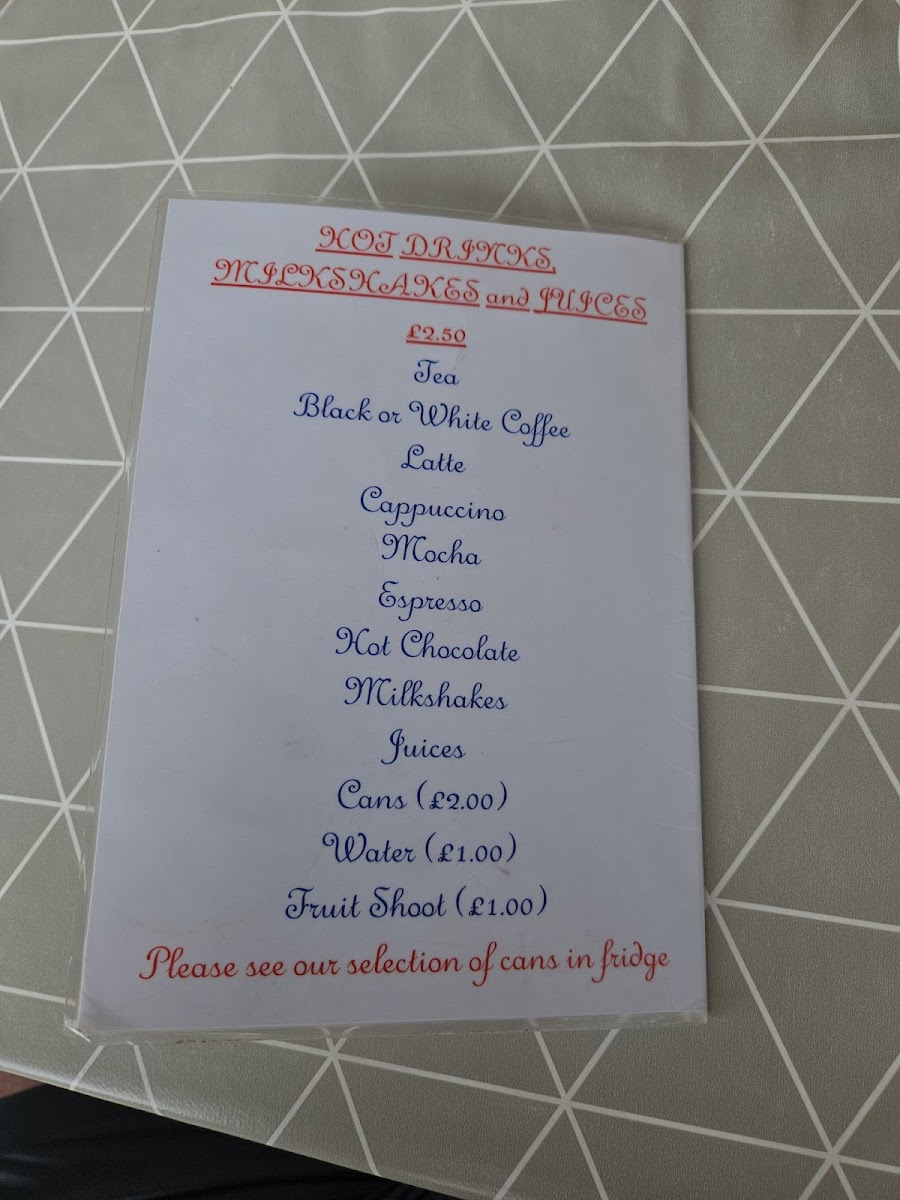 HOT DRINKS,
MILKSHAKES and JUICES
£2.50
Tea
Black or White Coffee
Latte
Cappuccino
Mocha
Espresso
Hot Chocolate
Milkshakes
Juices
Cans (£2.00)
Water (£1.00)
Fruit Shoot (£1.00)
Please see our selection of cans in fridge